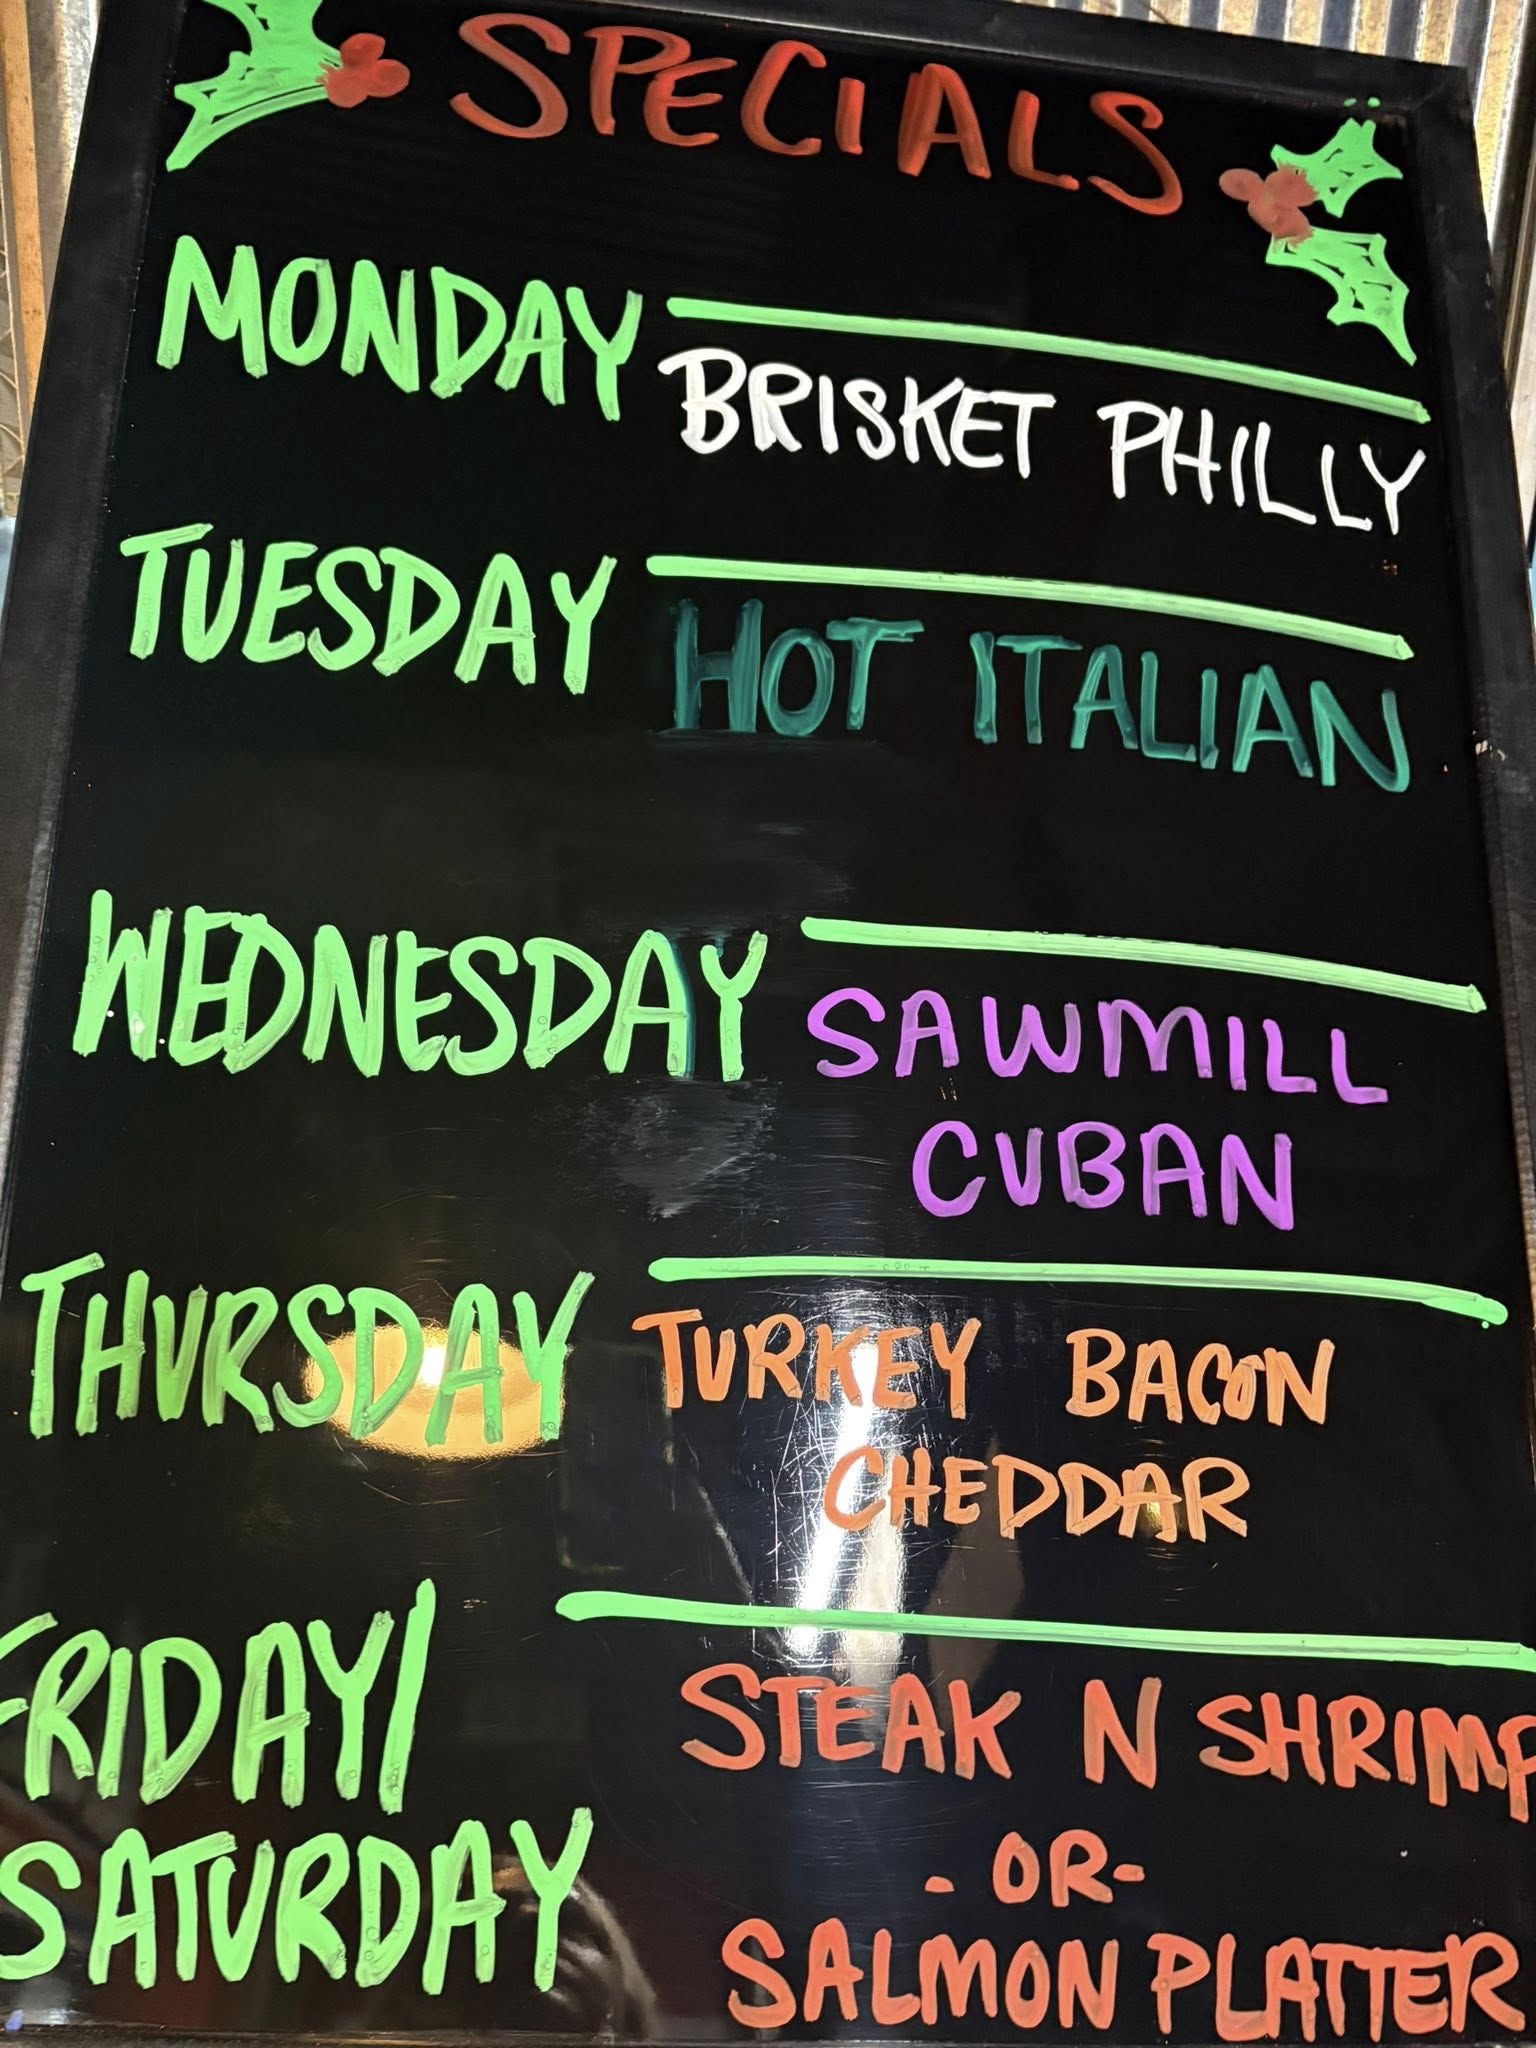 SPECIALS
MONDAY
BRISKET PHILLY
TUESDAY
HOT ITALIAN
WEDNESDAY
SAWMILL
CUBAN
THURSDAY
TURKEY BACON
CHEDDAR
FRIDAY/
SATURDAY
STEAK N SHRIMP
- OR -
SALMON PLATTER